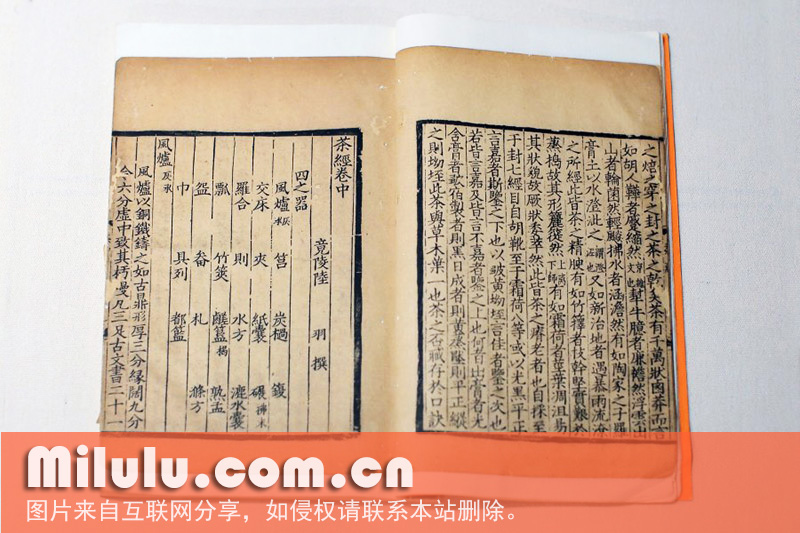 之焙之穿之封之茶之乾矣茶有千萬狀鹵莽而言
如胡人鞾者蹙縮然 文也 犎牛臆者廉襜然浮雲出
山者輪囷然輕飈拂水者涵澹然有如陶家之子羅
膏土以水澄泚之 謂澄泥也 又如新治地者遇暴雨流潦
之所經此皆茶之精腴有如竹籜者枝幹堅實艱於
蒸搗故其形籭簁然 上離下師 有如霜荷者莖葉凋沮易
其狀貌故厥狀委萃然此皆茶之瘠老者也自採至
于封七經目自胡靴至于霜荷八等或以光黑平正
言嘉者斯鑒之下也以皺黃坳垤言佳者鑒之次也
若皆言嘉及皆言不嘉者鑒之上也何者出膏者光
含膏者皺宿製者則黑日成者則黃蒸壓則平正縱
之則坳垤此茶與草木葉一也茶之否臧存於口訣
茶經卷中
竟陵陸 羽 撰
四之器
風爐 灰承 筥 炭檛 鍑
交床 夾 紙囊 碾 拂末
羅合 則 水方 漉水囊
瓢 竹筴 鹺簋 揭 熟盂
盌 畚 札 滌方
巾 具列 都籃
風爐 灰承
風爐以銅鐵鑄之如古鼎形厚三分緣闊九分
令六分虛中致其杇墁凡三足古文書二十一
Milulu.com.cn
图片来自互联网分享，如侵权请联系本站删除。